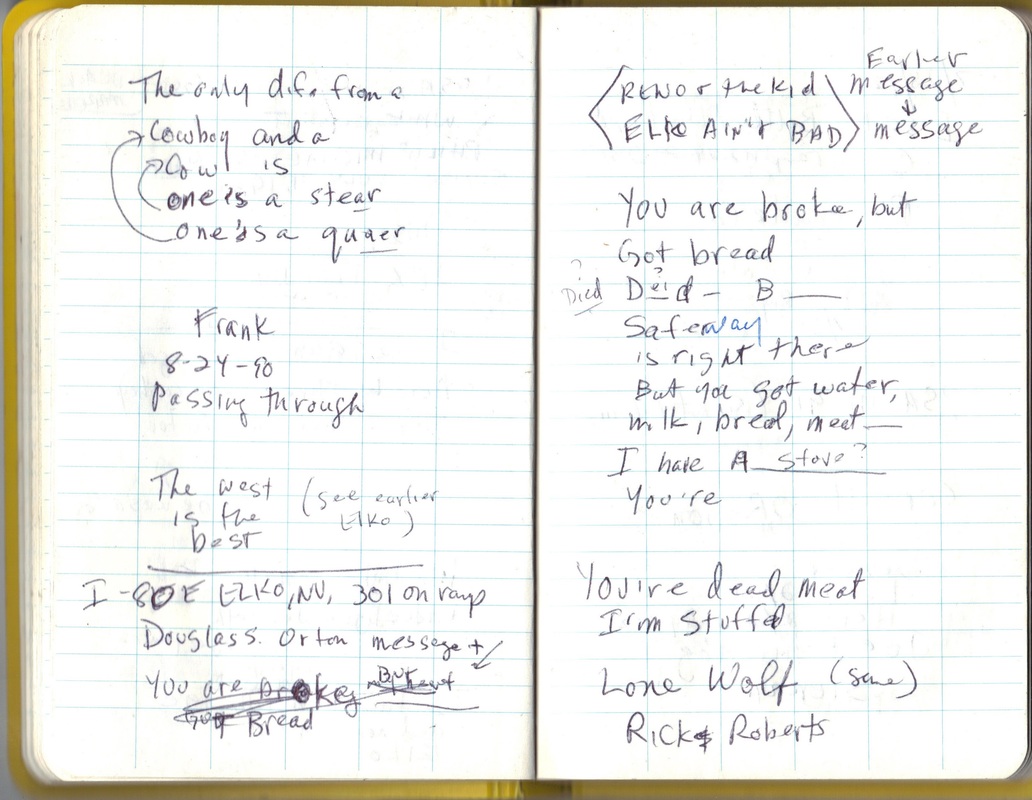 The only dif. from a
Cowboy and a
Cow is
one is a stear
one is a quaer
Frank
8-24-90
Passing through
The west (see earlier
is the Elko)
best
I-80E ELKO, NV, 301 on ramp
Douglas S. Orton message +
You are broke, But
Got Bread
RENO or the Kid
ELKO AIN'T BAD
Earlier
message
message
You are broke, but
Got bread
?
Died Deid - B
Safeway
is right there
But you got water,
milk, bread, meat
I have A stove?
You're
You're dead meat
I'm stuffd
Lone Wolf (same)
Rick Roberts